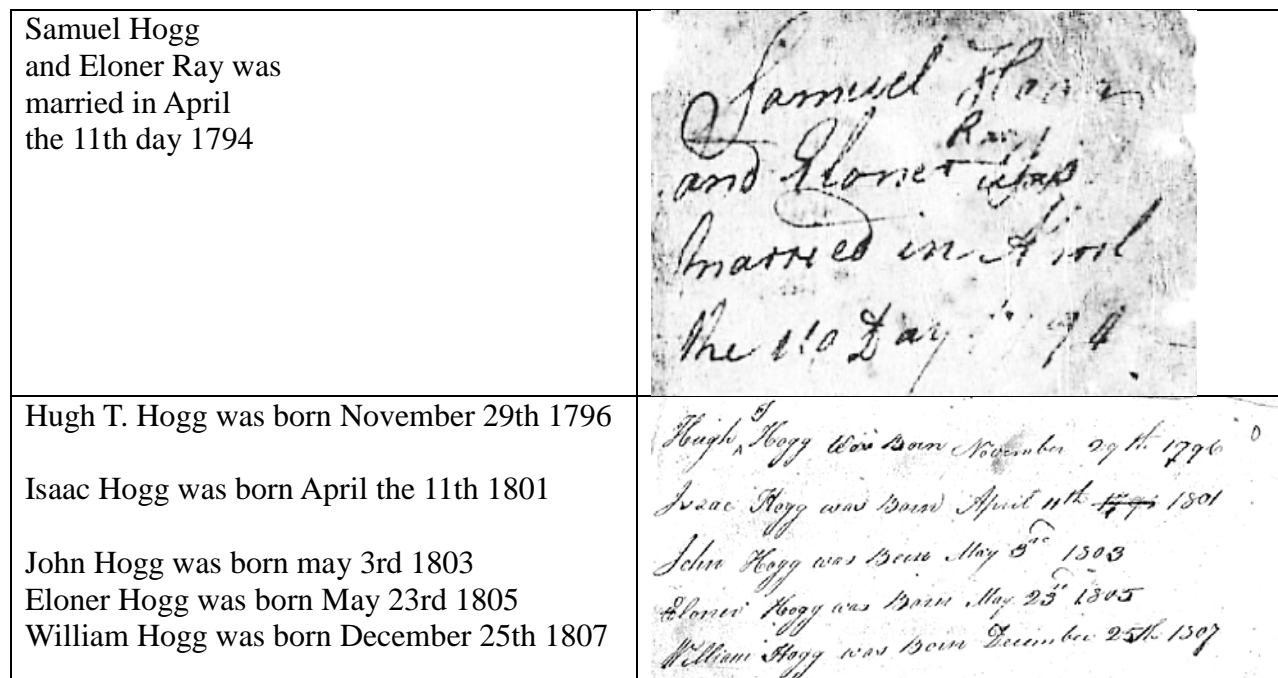 Samuel Hogg
and Eloner Ray was
married in April
the 11th day 1794
Samuel
Ray
and Eloner was
married in April
the Day 94
Hugh T. Hogg was born November 29th 1796
Isaac Hogg was born April the 11th 1801
John Hogg was born may 3rd 1803
Eloner Hogg was born May 23rd 1805
William Hogg was born December 25th 1807
T
Hugh ^ Hogg was Born November 29th 1796
Isaac Hogg was Born April 11th 1801
John Hogg was Born May 3rd 1803
Eloner Hogg was Born May 23rd 1805
William Hogg was Born December 25th 1807